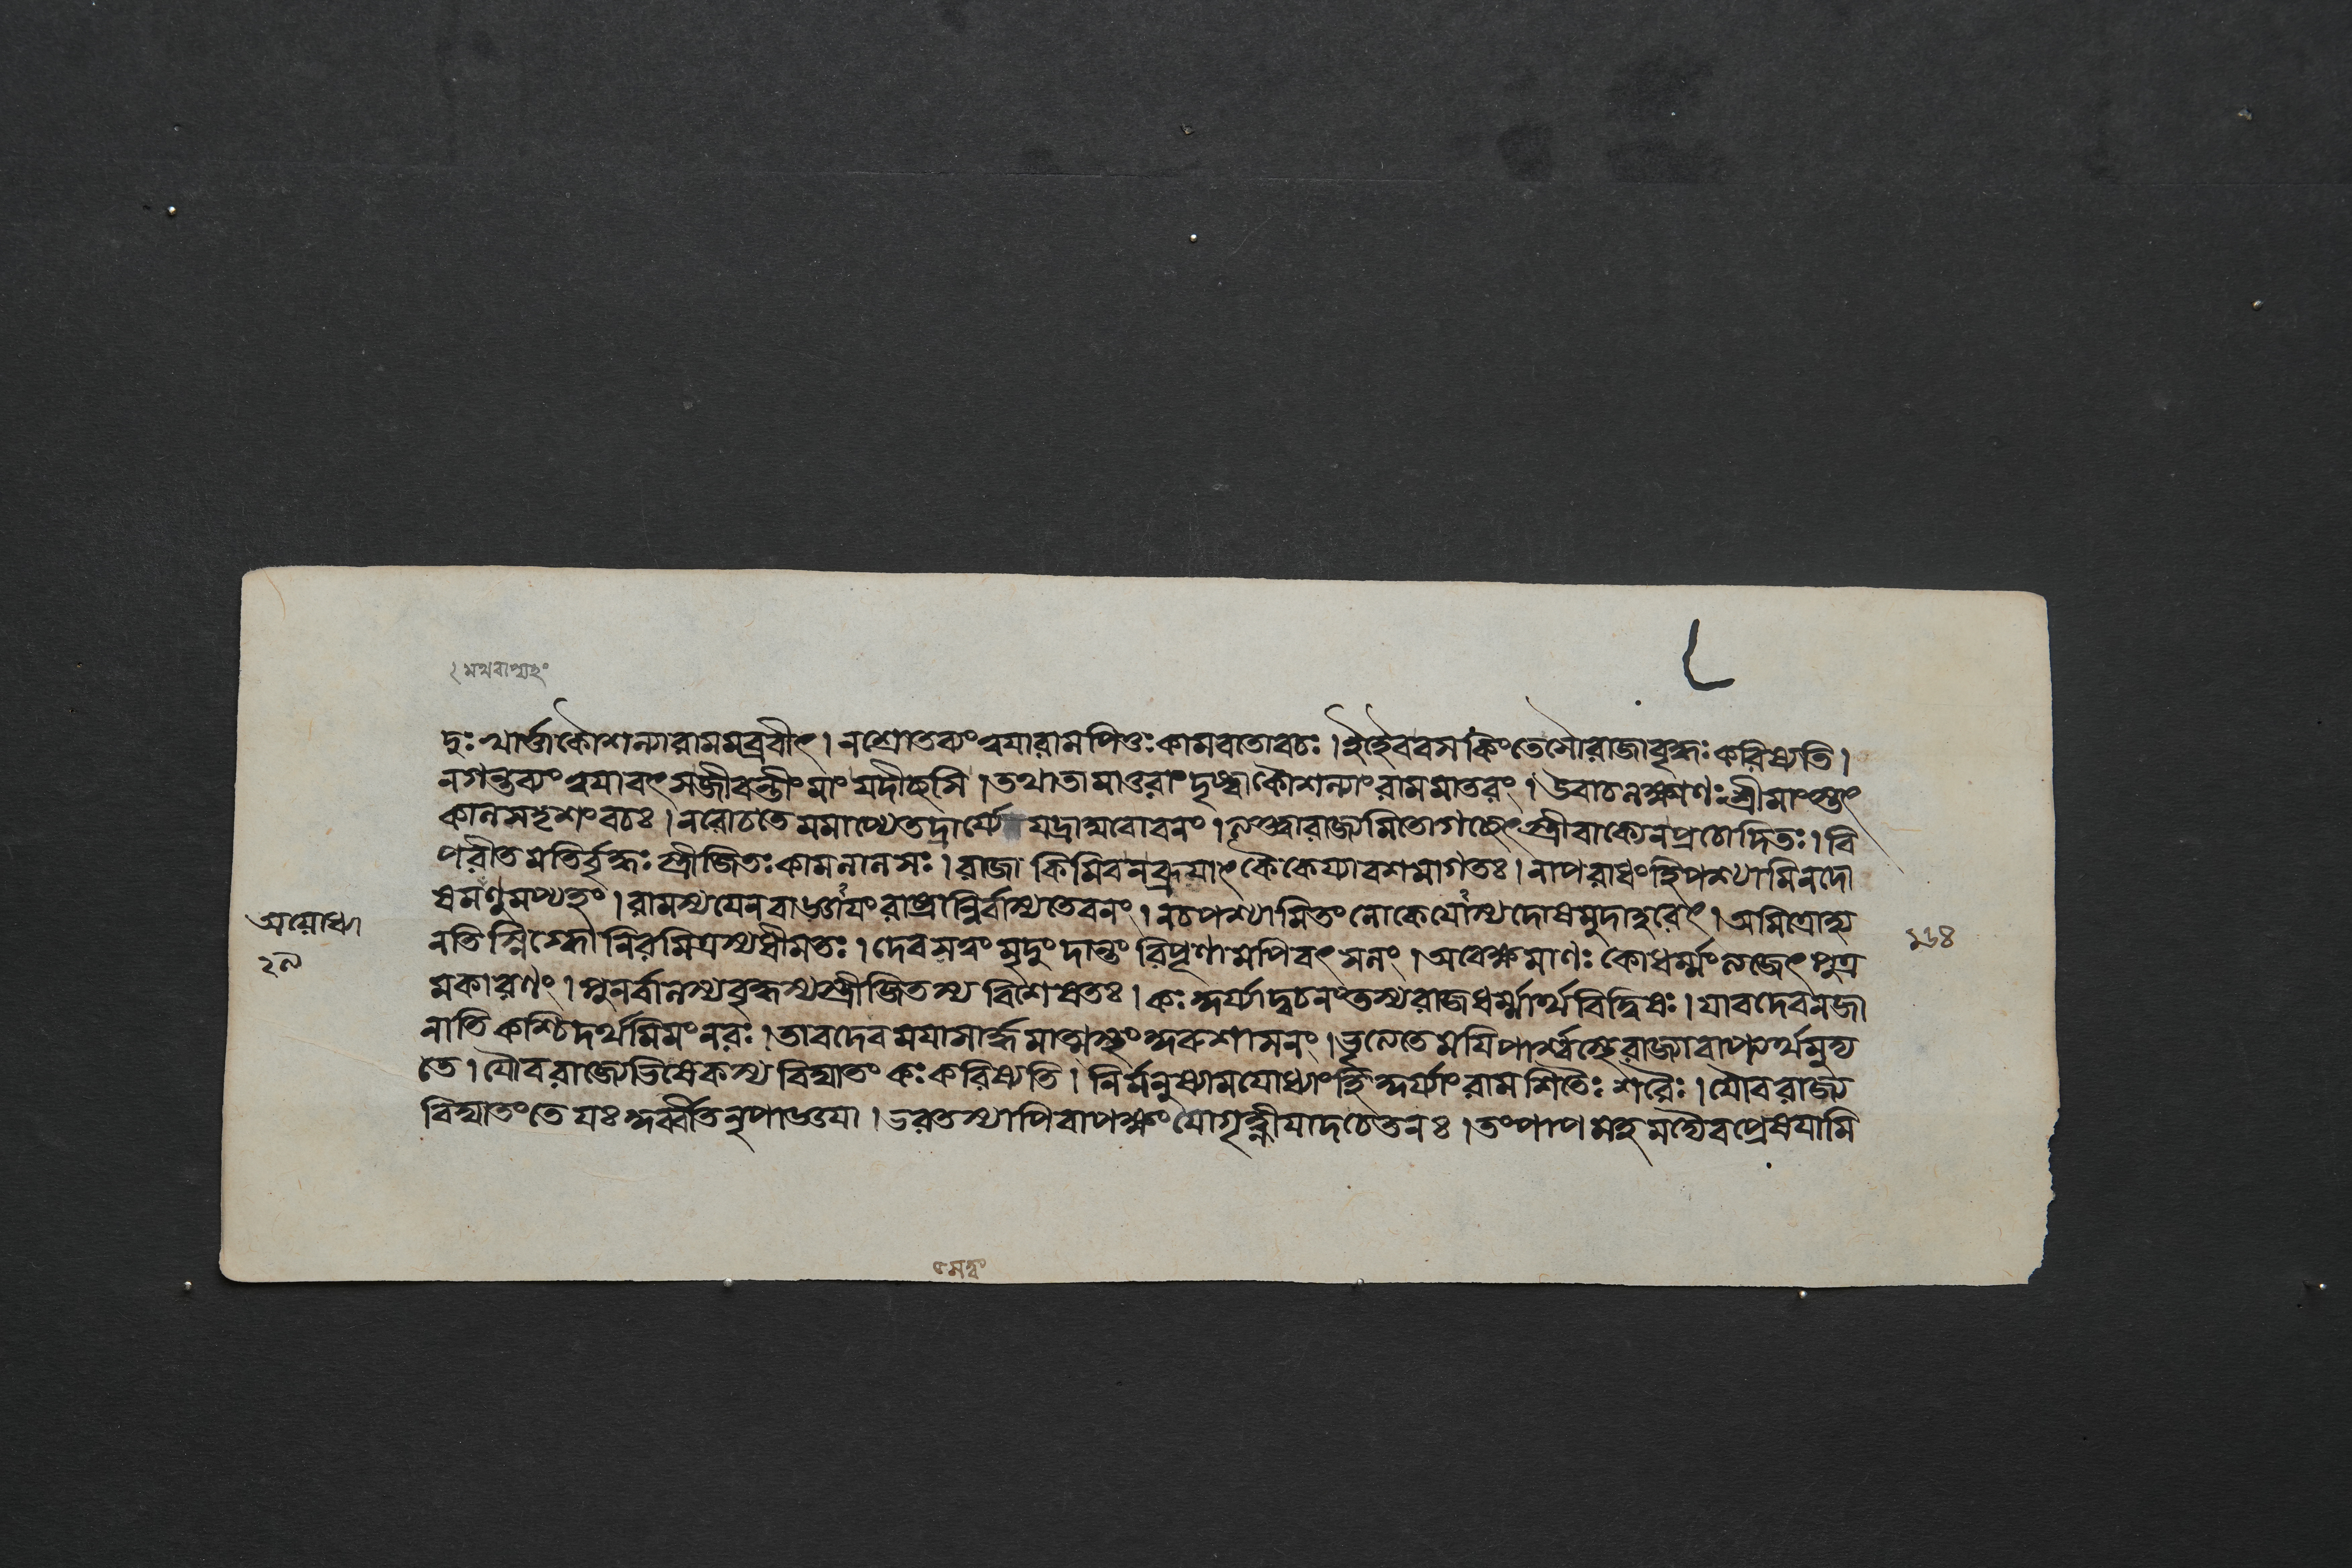 দুঃখার্ত্তাকৌশল্যারামমব্রবীৎ। নশ্রোতব্যংত্বয়ারামপিতুঃকামবতোবচঃ। ইহৈববসকিংতেসৌরাজাবৃদ্ধঃকরিষ্যতি।
নগন্তব্যংত্বয়াবৎসজীবন্তীংমাংযদীচ্ছসি। তথাতামাতুরাংদৃষ্ট্বাকৌশল্যাংরামমাতরং। উবাচলক্ষ্মণঃশ্রীমাংস্তৎ
কালসদৃশংবচঃ। নরোচতেমমাপ্যেতদার্য্যে যদ্রাঘবোবনং। ত্যক্ত্বারাজ্যমিতোগচ্ছেৎস্ত্রীবাক্যেনপ্রচোদিতঃ। বি
পরীতমতির্বৃদ্ধঃস্ত্রীজিতঃকামলালসঃ। রাজা কিমিবনব্রূয়াৎকৈকেয্যাবশমাগতঃ। নাপরাধংহিপশ্যামিনদো
ষমণুমপ্যহং। রামস্যযেন রাষ্ট্রান্নির্বাস্যতেবনং। নচপশ্যামিতংলোকেযোস্যদোষমুদাহরেৎ। অমিত্রোস্য
অযোধ্যা
১৬৪
নতিস্নিগ্ধো নিরমিত্রস্যধীমতঃ। দেবসত্ত্বং মৃদুং দান্তং রিপূণামপিবৎসলং। অবেক্ষমাণঃ কোধর্ম্মংত্যজেৎপুত্র
মকারণং। পুনর্বালস্যবৃদ্ধস্যস্ত্রীজিতস্য বিশেষতঃ। কঃকুর্য্যাদ্বচনংতস্যরাজধর্ম্মার্থবিদ্বিষঃ। যাবদেবনজা
নাতি কশ্চিদর্থমিমংনরঃ। তাবদেবময়াসার্দ্ধমাত্মস্থংকুরুশাসনং। ময়িপার্শ্বস্থেরাজ্যাবাপ্ত্যর্থমুদ্য
তে। যৌবরাজ্যেভিষেকস্য বিঘাতং কঃকরিষ্যতি। নির্মনুষ্যামযোধ্যাংহিকুর্য্যাংরামশিতৈঃ শরৈঃ। যৌবরাজ্য
বিঘাতংতে যঃকুর্ব্বীতনৃপাজ্ঞয়া। ভরতস্যাপিবাপক্ষংযোগৃহ্ণীয়াদচেতনঃ। তংপাপমহমদ্যৈবপ্রেষয়ামি